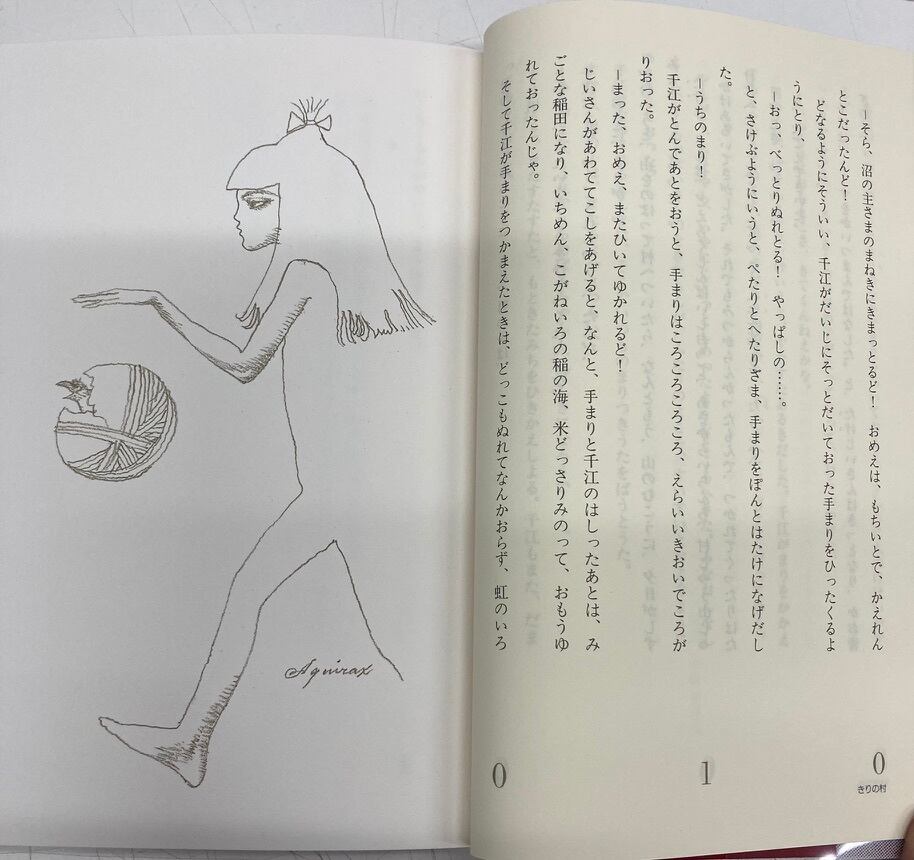 ―そら、沼の主さまのまねきにきまっとるど！　おめえは、もちいとで、かえれん
とこだったんど！
どなるようにそういい、千江がだいじにそっとだいておった手まりをひったくるよ
うにとり、
―おっ、べっとりぬれとる！　やっぱしの……。
と、さけぶようにいうと、ぺたりとへたりざま、手まりをぽんとはたけになげだし
た。
―うちのまり！
千江がとんであとをおうと、手まりはころころころころ、えらいいきおいでころが
りおった。
―まった、おめえ、またひいてゆかれるど！
じいさんがあわててこしをあげると、なんと、手まりと千江のはしったあとは、み
ごとな稲田になり、いちめん、こがねいろの稲の海、米どっさりみのって、おもうゆ
れておったんじゃ。
そして千江が手まりをつかまえたときは、どっこもぬれてなんかおらず、虹のいろ
0
1
0
きりの村
Aquirax